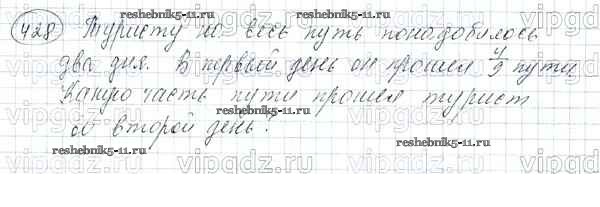 428 Туристу на весь путь понадобилось
два дня. В первый день он прошел 4/9 пути
Какую часть пути прошел турист
во второй день?
reshebnik5-11.ru
reshebnik5-11.ru
reshebnik5-11.ru
reshebnik5-11.ru
vipgdz.ru
vipgdz.ru
vipgdz.ru